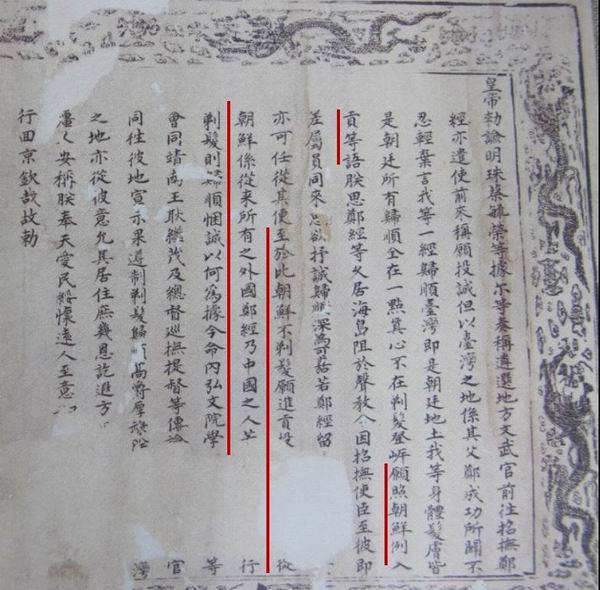 皇帝勅諭明珠蔡毓榮等據尔等奏稱遴選地方文武官前往招撫鄭
經亦遣使前來稱願投誠但以臺灣之地係其父鄭成功所闢不
忍輕棄言我等一經歸順臺灣即是朝廷地土我等身體髮膚皆
是朝廷所有歸順全在一點真心不在剃髮登岸願照朝鮮例入
貢等語朕思鄭經等久居海島阻於聲教今因招撫使臣至彼即
差屬員同來思欲抒誠歸順深為可嘉若鄭經留
亦可任從其便至於比朝鮮不剃髮願進貢投 從
朝鮮係從來所有之外國鄭經乃中國之人若 行
剃髮則歸順悃誠以何為據今命內弘文院學 等
會同靖南王耿繼茂及總督巡撫提督等傳諭 官
同往彼地宣示果遵制剃髮歸順高爵厚祿 灣
之地亦從彼意允其居住庶幾恩訖遐方
人安稱朕奉天愛民綏懷遠人至意
行回京欽哉故勅